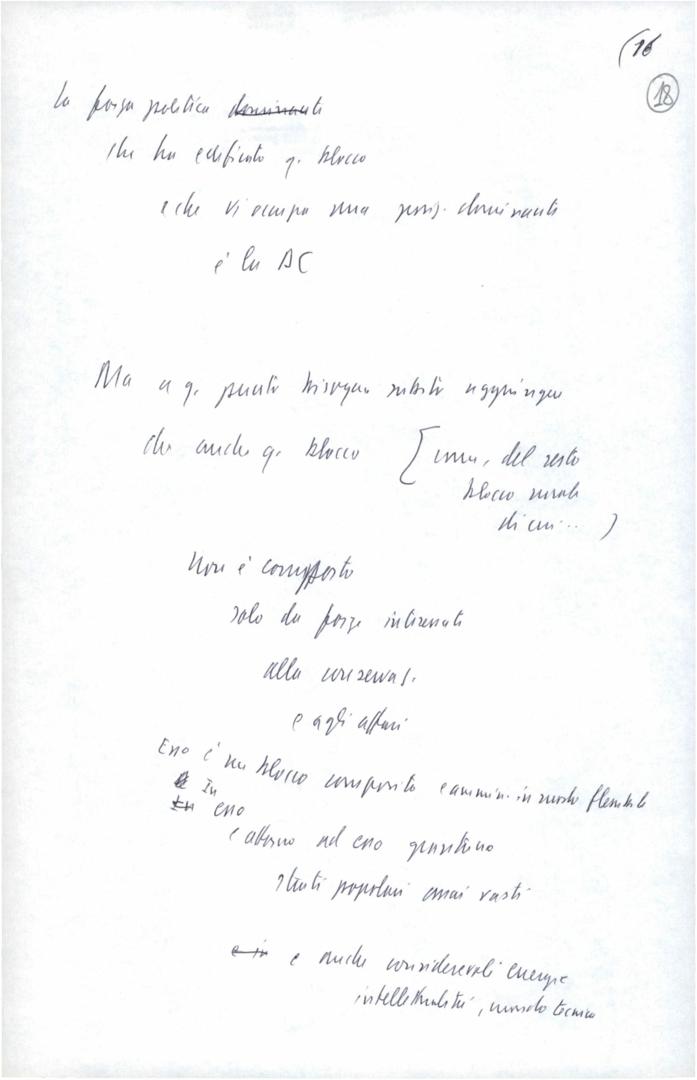 (16
18
la forza politica dominante
che ha edificato q. blocco
e che vi occupa una posiz. dominante
è la DC
Ma a q. punto bisogna subito aggiungere
che anche q. blocco [come, del resto
blocco rurale
di cui... )
non è composto
solo da forze interessate
alla conservaz.
e agli affari
Esso è un blocco composito e ammin. in modo flessibile
In
esso
e attorno ad esso gravitano
strati popolari assai vasti
e in e anche considerevoli energie
intellettuali, mondo tecnico